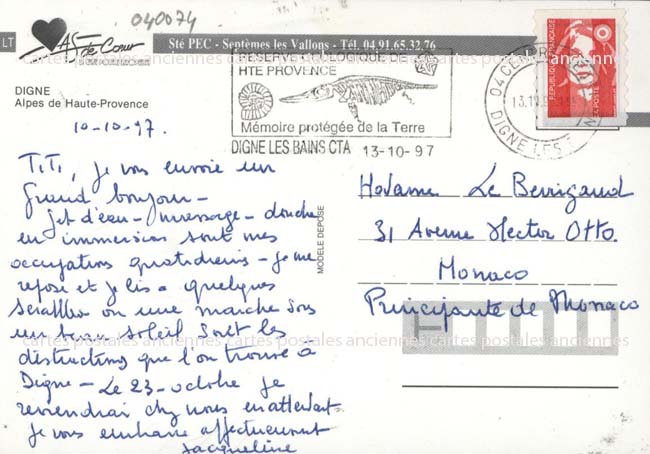 040074
LT
As de Coeur
Sté PEC - Septèmes les Vallons - Tél. 04.91.65.32.76
DIGNE
Alpes de Haute-Provence
10-10-97.
RESERVE GEOLOGIQUE DE
HTE PROVENCE
Mémoire protégée de la Terre
DIGNE LES BAINS CTA 13-10-97
REPUBLIQUE FRANCAISE
LA POSTE
DIGNE LES
MODELE DEPOSE
TiTi, je vous envoie un
grand bonjour -
Jet d'eau - massage - douche
en immersion sont mes
occupations quotidiens - je me
repose et je lis - quelques
scrabbles ou une marche sous
un beau soleil sont les
distractions que l'on trouve à
Digne - Le 23 octobre je
reviendrai chez nous en attendant
je vous embrasse affectueusement
Jacqueline
Madame Le Berrigaud
31 Avenue Hector Otto.
Monaco
Principauté de Monaco
cartes postales anciennes cartes postales anciennes cartes postales anciennes
cartes postales anciennes cartes postales anciennes cartes postales anciennes